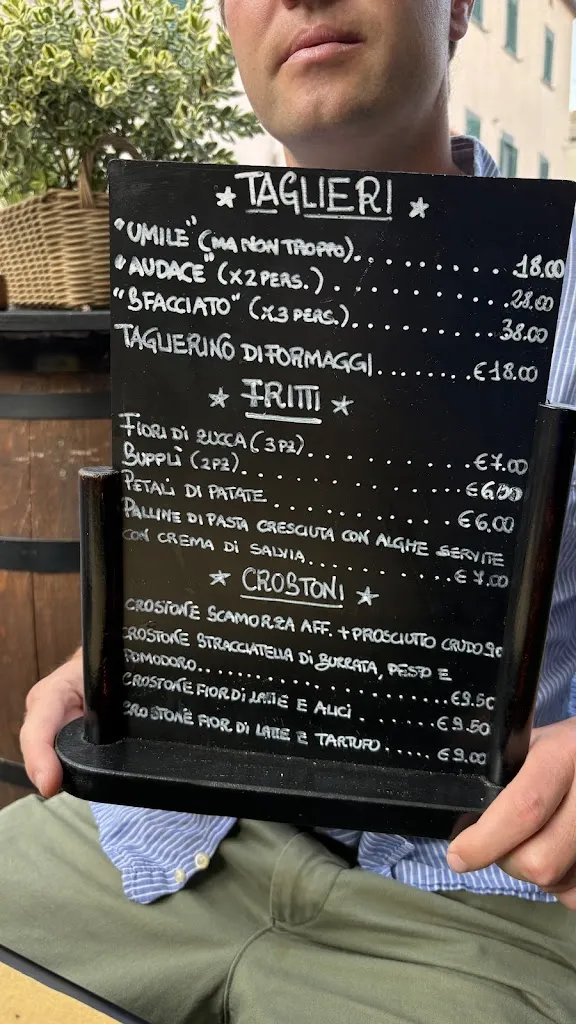 ★ TAGLIERI ★
"UMILE" (MA NON TROPPO)........18.00
"AUDACE" (X2 PERS.)........28.00
"SFACCIATO" (X3 PERS.)........38.00
TAGLIERINO DI FORMAGGI.......€18.00
★ FRITTI ★
FIORI DI ZUCCA (3PZ)........€7.00
SUPPLÌ (2PZ)........€6,00
PETALI DI PATATE........€6,00
PALLINE DI PASTA CRESCIUTA CON ALGHE SERVITE
CON CREMA DI SALVIA........€7.00
★ CROSTONI ★
CROSTONE SCAMORZA AFF. + PROSCIUTTO CRUDO
CROSTONE STRACCIATELLA DI BURRATA, PESTO E
POMODORO........€9.50
CROSTONE FIOR DI LATTE E ALICI......€9.50
CROSTONE FIOR DI LATTE E TARTUFO.....€9.00